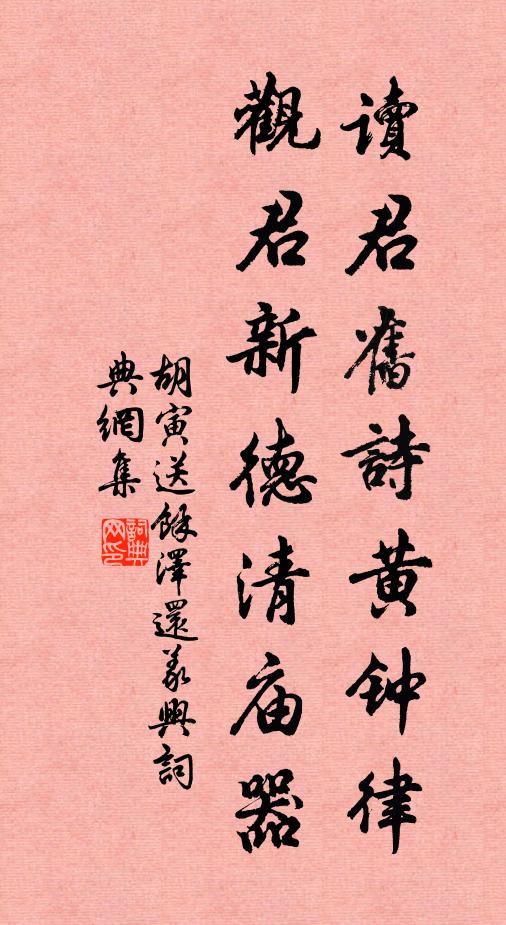 讀君舊詩黄钟律
觀君新德清庙器
胡寅送餘澤還義興詞
典網集
詞典
网印